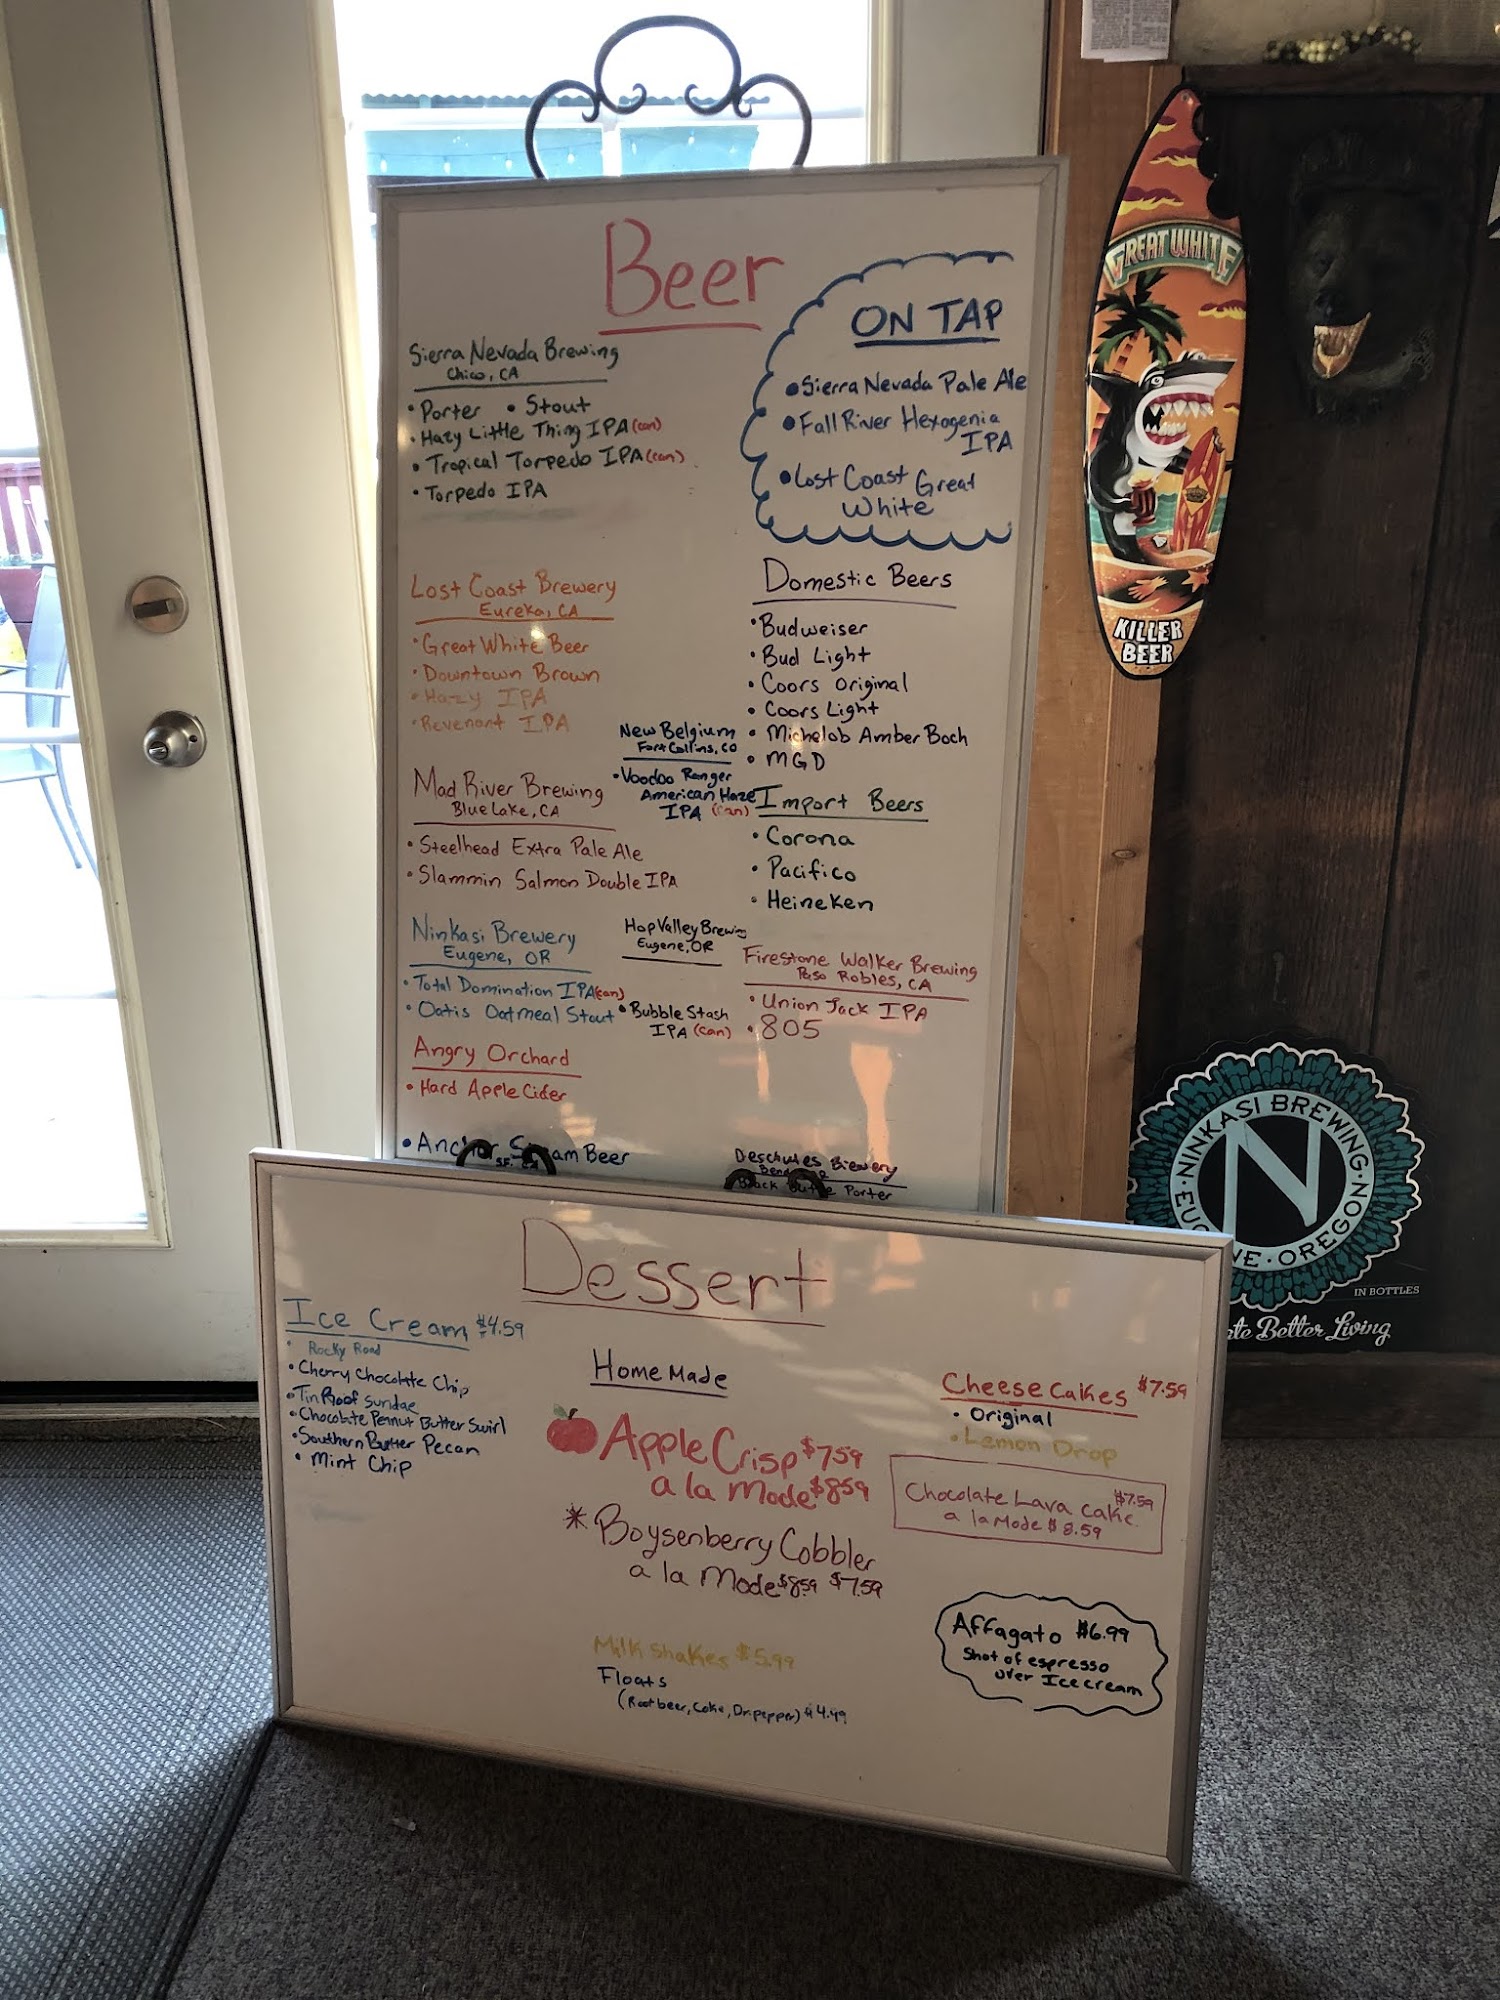 Beer
ON TAP
• Sierra Nevada Pale Ale
• Fall River Hexagenia
IPA
• Lost Coast Great
White
Sierra Nevada Brewing
Chico, CA
• Porter • Stout
• Hazy Little Thing IPA (can)
• Tropical Torpedo IPA (can)
• Torpedo IPA
Lost Coast Brewery
Eureka, CA
• Great White Beer
• Downtown Brown
• Hazy IPA
• Revenant IPA
Domestic Beers
• Budweiser
• Bud Light
• Coors Original
• Coors Light
• Michelob Amber Boch
• MGD
New Belgium
Fort Collins, CO
• Voodoo Ranger
American Haze
IPA (can)
Mad River Brewing
Blue Lake, CA
• Steelhead Extra Pale Ale
• Slammin Salmon Double IPA
Import Beers
• Corona
• Pacifico
• Heineken
Ninkasi Brewery
Eugene, OR
• Total Domination IPA (can)
• Oatis Oatmeal Stout
Hop Valley Brewing
Eugene, OR
• Bubble Stash
IPA (can)
Firestone Walker Brewing
Paso Robles, CA
• Union Jack IPA
• 805
Angry Orchard
• Hard Apple Cider
• Anchor Steam Beer
S.F. CA
Deschutes Brewery
Bend
Black Butte Porter
Dessert
Ice Cream $4.59
• Rocky Road
• Cherry Chocolate Chip
• Tin Roof Sundae
• Chocolate Peanut Butter Swirl
• Southern Butter Pecan
• Mint Chip
Home Made
Apple Crisp $7.59
a la Mode $8.59
* Boysenberry Cobbler
a la Mode $8.59 $7.59
Milk Shakes $5.99
Floats
(Root beer, Coke, Dr. pepper) $4.49
Cheese Cakes $7.59
• Original
• Lemon Drop
Chocolate Lava Cake $7.59
a la Mode $8.59
Affagato $6.99
Shot of espresso
over Ice cream
GREAT WHITE
KILLER
BEER
NINKASI BREWING
N
OREGON
IN BOTTLES
Better Living